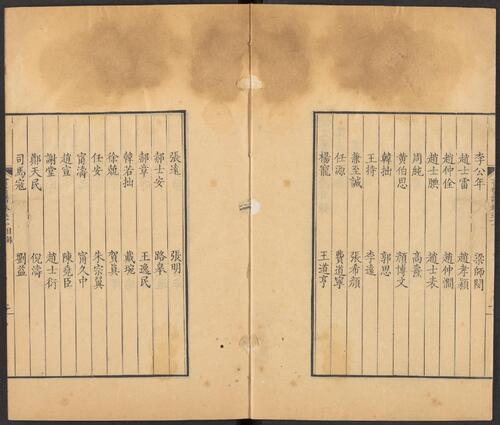 李公年 梁師閔
趙士雷 趙孝穎
趙仲佺 趙仲僩
趙士腆 趙士衮
周純 高燾
黄伯思 顏博文
韓拙 郭思
王持 李遠
兼至誠 張希顏
任源 費道寧
楊寵 王道亨
張遠 張明
郝士安 路皋
郝章 王逸民
韓若拙 戴琬
徐兢 賀真
任安 朱宗翼
甯濤 甯久中
趙宣 陳堯臣
謝堂 趙士衍
鄭天民 倪濤
司馬寇 劉益
目録